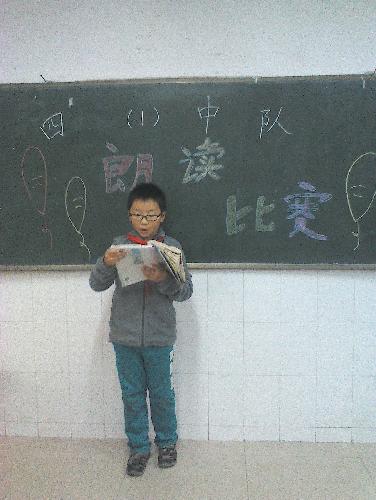 四（1）中队
朗读
比赛